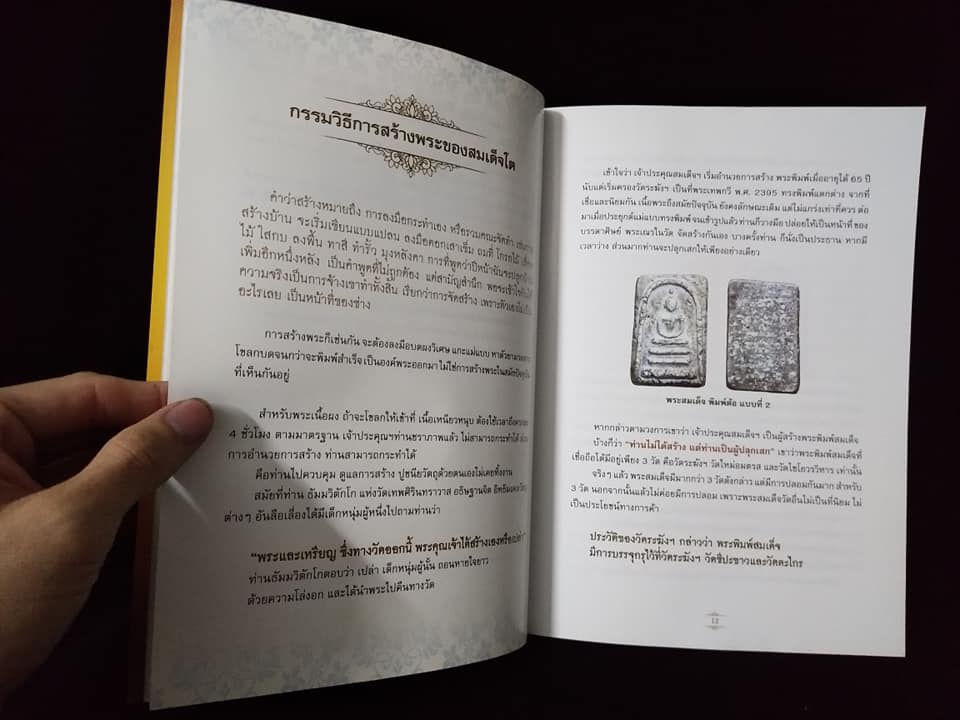 กรรมวิธีการสร้างพระของสมเด็จโต
คำว่าสร้างหมายถึง การลงมือกระทำเอง หรือรวมคณะจัดทำ
สร้างบ้าน จะเริ่มเขียนแบบแปลน ลงมือตอกเสาเข็ม ถมที่
ไม้ ไสกบ ลงพื้น ทาสี ทำรั้ว มุงหลังคา การที่พูดว่าปีหน้าฉันจะปลูกบ้าน
เพิ่มอีกหนึ่งหลัง เป็นคำพูดที่ไม่ถูกต้อง แต่สามัญสำนึก
ความจริงเป็นการจ้างเขาทำทั้งสิ้น เรียกว่าการจัดสร้าง เพราะตัวเองไม่
อะไรเลย เป็นหน้าที่ของช่าง
การสร้างพระก็เช่นกัน จะต้องลงมือบดผงวิเศษ แกะแม่แบบ
โขลกบดจนกว่าจะพิมพ์สำเร็จ เป็นองค์พระออกมา ไม่ใช่การสร้างพระในสมัยปัจจุบัน
ที่เห็นกันอยู่
สำหรับพระเนื้อผง ถ้าจะโขลกให้เข้าที่ เนื้อเหนียวหนุบ ต้องใช้เวลา
4 ชั่วโมง ตามมาตรฐาน เจ้าประคุณฯท่านชราภาพแล้ว ไม่สามารถกระทำได้
การอำนวยการสร้าง ท่านสามารถกระทำได้
คือท่านไปควบคุม ดูแลการสร้าง ปูชนียวัตถุด้วยตนเองไม่เคยทิ้งงาน
สมัยที่ท่าน ธัมมวิตักโก แห่งวัดเทพศิรินทราวาส อธิษฐานจิต
ต่างๆ อันลือเลื่องได้มีเด็กหนุ่มผู้หนึ่งไปถามท่านว่า
"พระและเหรียญ ซึ่งทางวัดออกนี้ พระคุณเจ้าได้สร้างเองหรือเปล่า"
ท่านธัมมวิตักโกตอบว่า เปล่า เด็กหนุ่มผู้นั้น ถอนหายใจยาว
ด้วยความโล่งอก และได้นำพระไปคืนทางวัด
เข้าใจว่า เจ้าประคุณสมเด็จฯ เริ่มอำนวยการสร้าง พระพิมพ์เมื่ออายุได้ 65 ปี
นับแต่เริ่มครองวัดระฆังฯ เป็นที่พระเทพกวี พ.ศ. 2395 ทรงพิมพ์แตกต่าง จากที่
เชื่อและนิยมกัน เนื้อพระถึงสมัยปัจจุบัน ยังคงลักษณะเดิม แต่ไม่แกร่งเท่าที่ควร ต่อ
มาเมื่อประยุกต์แม่แบบทรงพิมพ์ จนเข้ารูปแล้ว ท่านก็วางมือ ปล่อยให้เป็นหน้าที่ ของ
บรรดาศิษย์ พระเณรในวัด จัดสร้างกันเอง บางครั้งท่าน ก็นั่งเป็นประธาน หากมี
เวลาว่าง ส่วนมากท่านจะปลุกเสกให้เพียงอย่างเดียว
พระสมเด็จ พิมพ์ต้อ แบบที่ 2
หากกล่าวตามวงการเขาว่า เจ้าประคุณสมเด็จฯ เป็นผู้สร้างพระพิมพ์สมเด็จ
บ้างก็ว่า "ท่านไม่ได้สร้าง แต่ท่านเป็นผู้ปลุกเสก" เขาว่าพระพิมพ์สมเด็จที่
เชื่อถือได้มีอยู่เพียง 3 วัด คือวัดระฆังฯ วัดใหม่อมตรส และวัดไชโยวรวิหาร เท่านั้น
จริงๆ แล้ว พระสมเด็จมีมากกว่า 3 วัดดังกล่าว แต่มีการปลอมกันมาก สำหรับ
3 วัด นอกจากนั้นแล้วไม่ค่อยมีการปลอม เพราะพระสมเด็จวัดอื่นไม่เป็นที่นิยม ไม่
เป็นประโยชน์ทางการค้า
ประวัติของวัดระฆังฯ กล่าวว่า พระพิมพ์สมเด็จ
มีการบรรจุกรุไว้ที่วัดระฆังฯ วัดชีปะขาวและวัดตะไกร
12